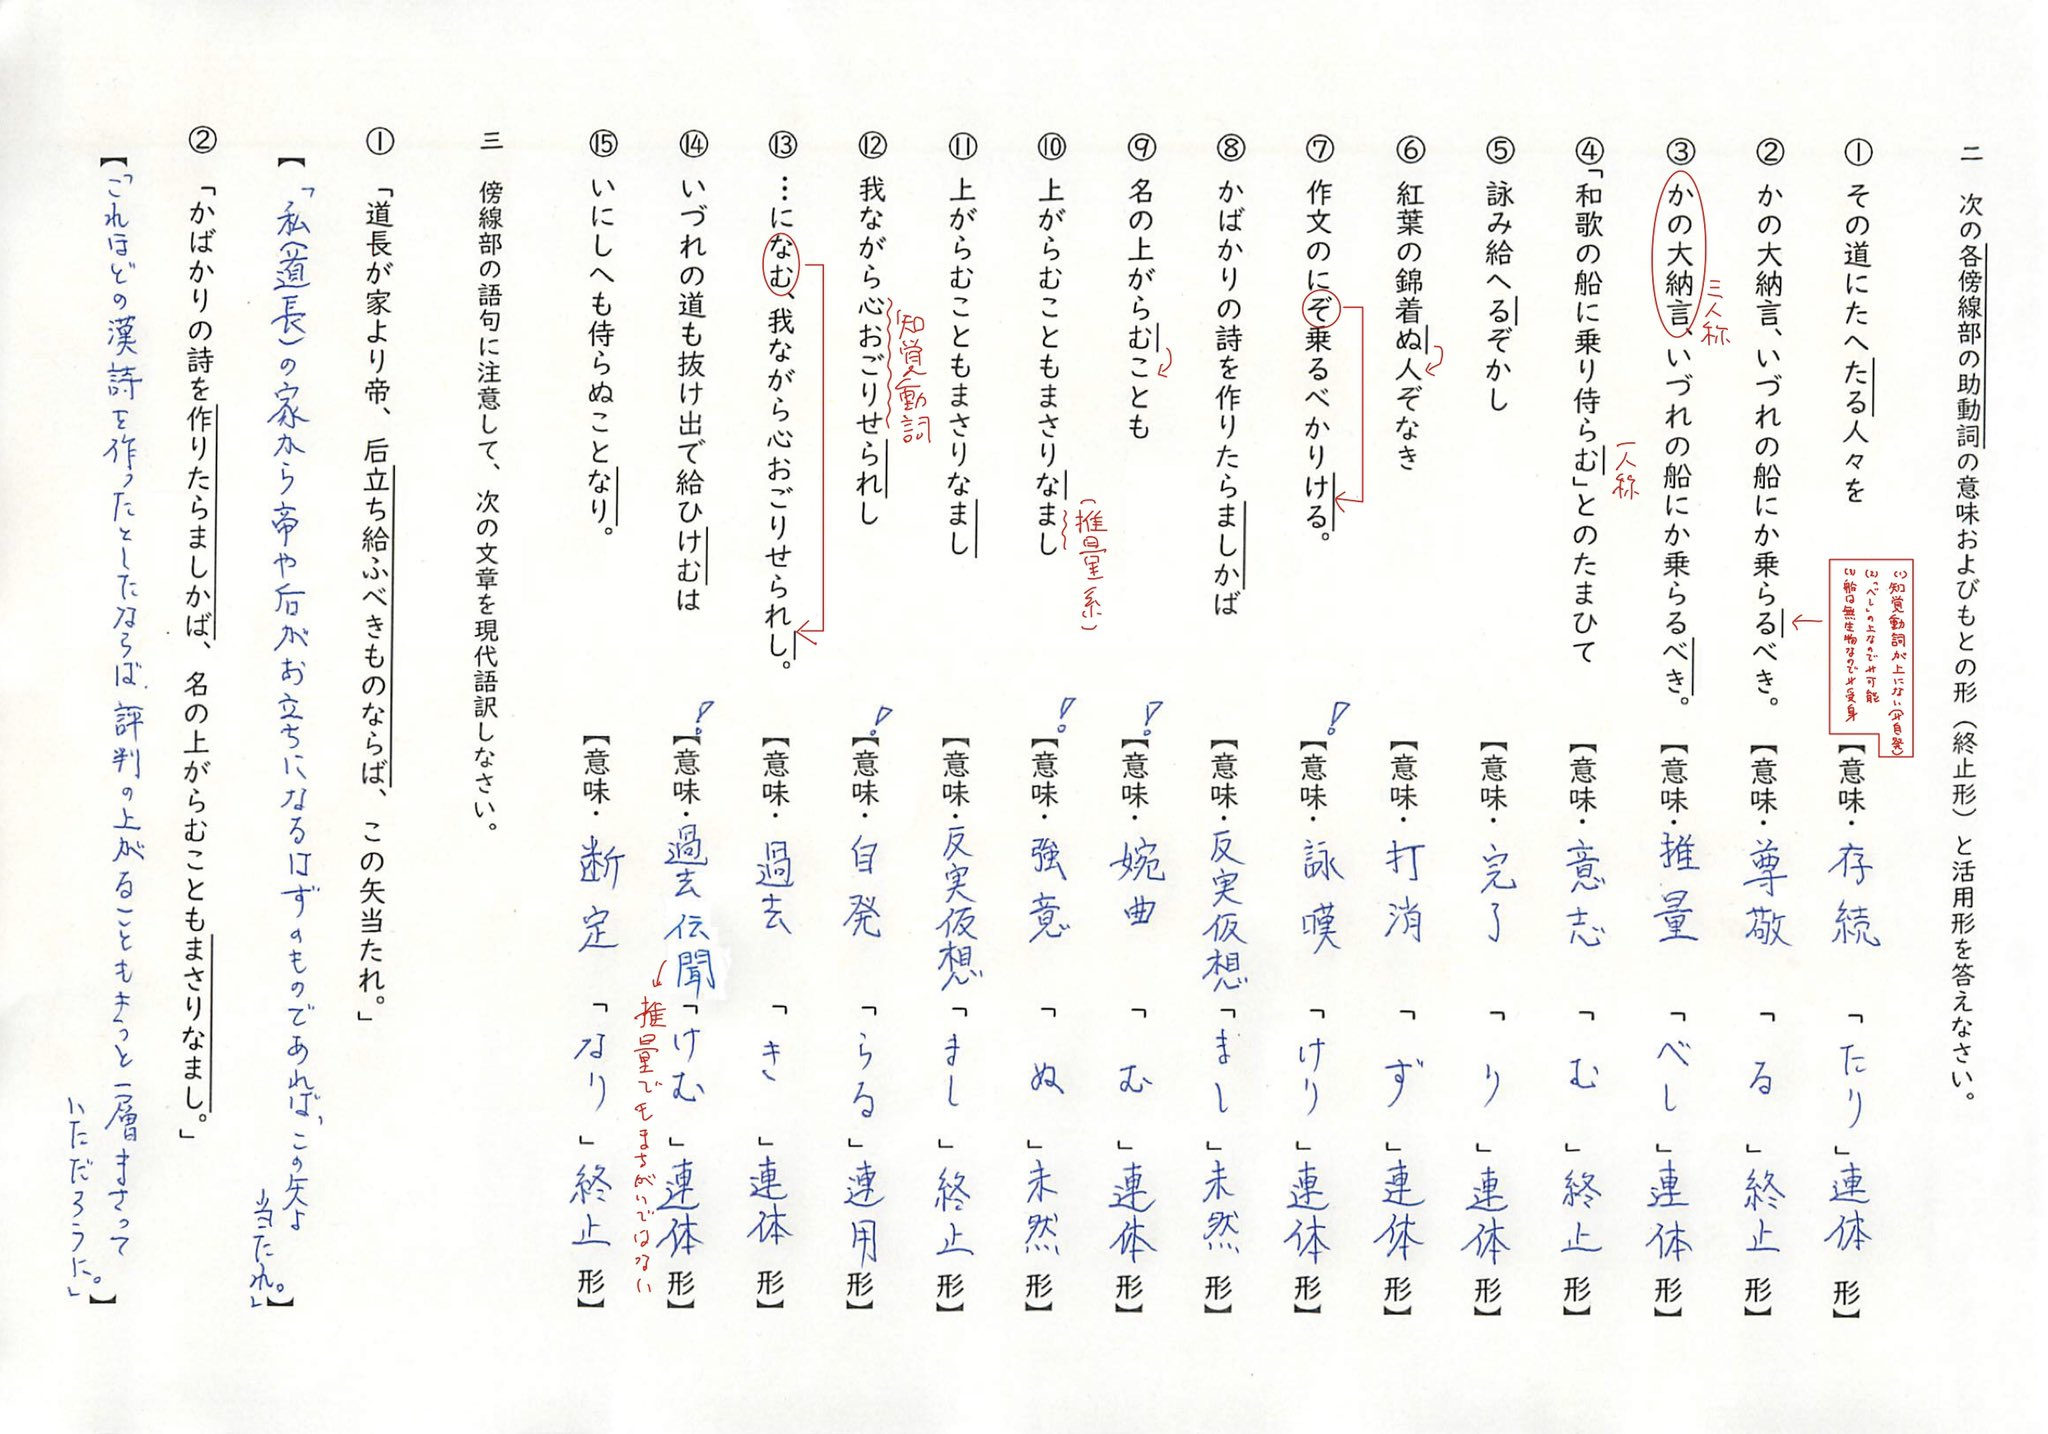 二　次の各傍線部の助動詞の意味およびもとの形（終止形）と活用形を答えなさい。
① その道にたへたる人々を　【意味・存続「たり」連体形】
② かの大納言、いづれの船にか乗らるべき。　【意味・尊敬「る」終止形】
(1) 知覚動詞が上にない(≠自発)
(2)「べし」の上なので≠可能
(3) 船は無生物なので≠受身
③ かの大納言、いづれの船にか乗らるべき。　【意味・推量「べし」連体形】
三人称
④ 「和歌の船に乗り侍らむ」とのたまひて　【意味・意志「む」終止形】
一人称
⑤ 詠み給へるぞかし　【意味・完了「り」連体形】
⑥ 紅葉の錦着ぬ人ぞなき　【意味・打消「ず」連体形】
⑦ 作文のにぞ乗るべかりける。　！【意味・詠嘆「けり」連体形】
⑧ かばかりの詩を作りたらましかば　【意味・反実仮想「まし」未然形】
⑨ 名の上がらむことも　！【意味・婉曲「む」連体形】
⑩ 上がらむこともまさりなまし　！【意味・強意「ぬ」未然形】
(推量系)
⑪ 上がらむこともまさりなまし　【意味・反実仮想「まし」終止形】
⑫ 我ながら心おごりせられし　！【意味・自発「らる」連用形】
知覚動詞
⑬ …になむ、我ながら心おごりせられし。　【意味・過去「き」連体形】
⑭ いづれの道も抜け出で給ひけむは　！【意味・過去伝聞「けむ」連体形】
推量でもまちがいではない
⑮ いにしへも侍らぬことなり。　【意味・断定「なり」終止形】
三　傍線部の語句に注意して、次の文章を現代語訳しなさい。
① 「道長が家より帝、后立ち給ふべきものならば、この矢当たれ。」
【「私（道長）の家から帝や后がお立ちになるはずのものであれば、この矢よ
当たれ。」】
② 「かばかりの詩を作りたらましかば、名の上がらむこともまさりなまし。」
【「これほどの漢詩を作ったとしたならば、評判の上がることもきっと一層まさって
いただろうに。」】